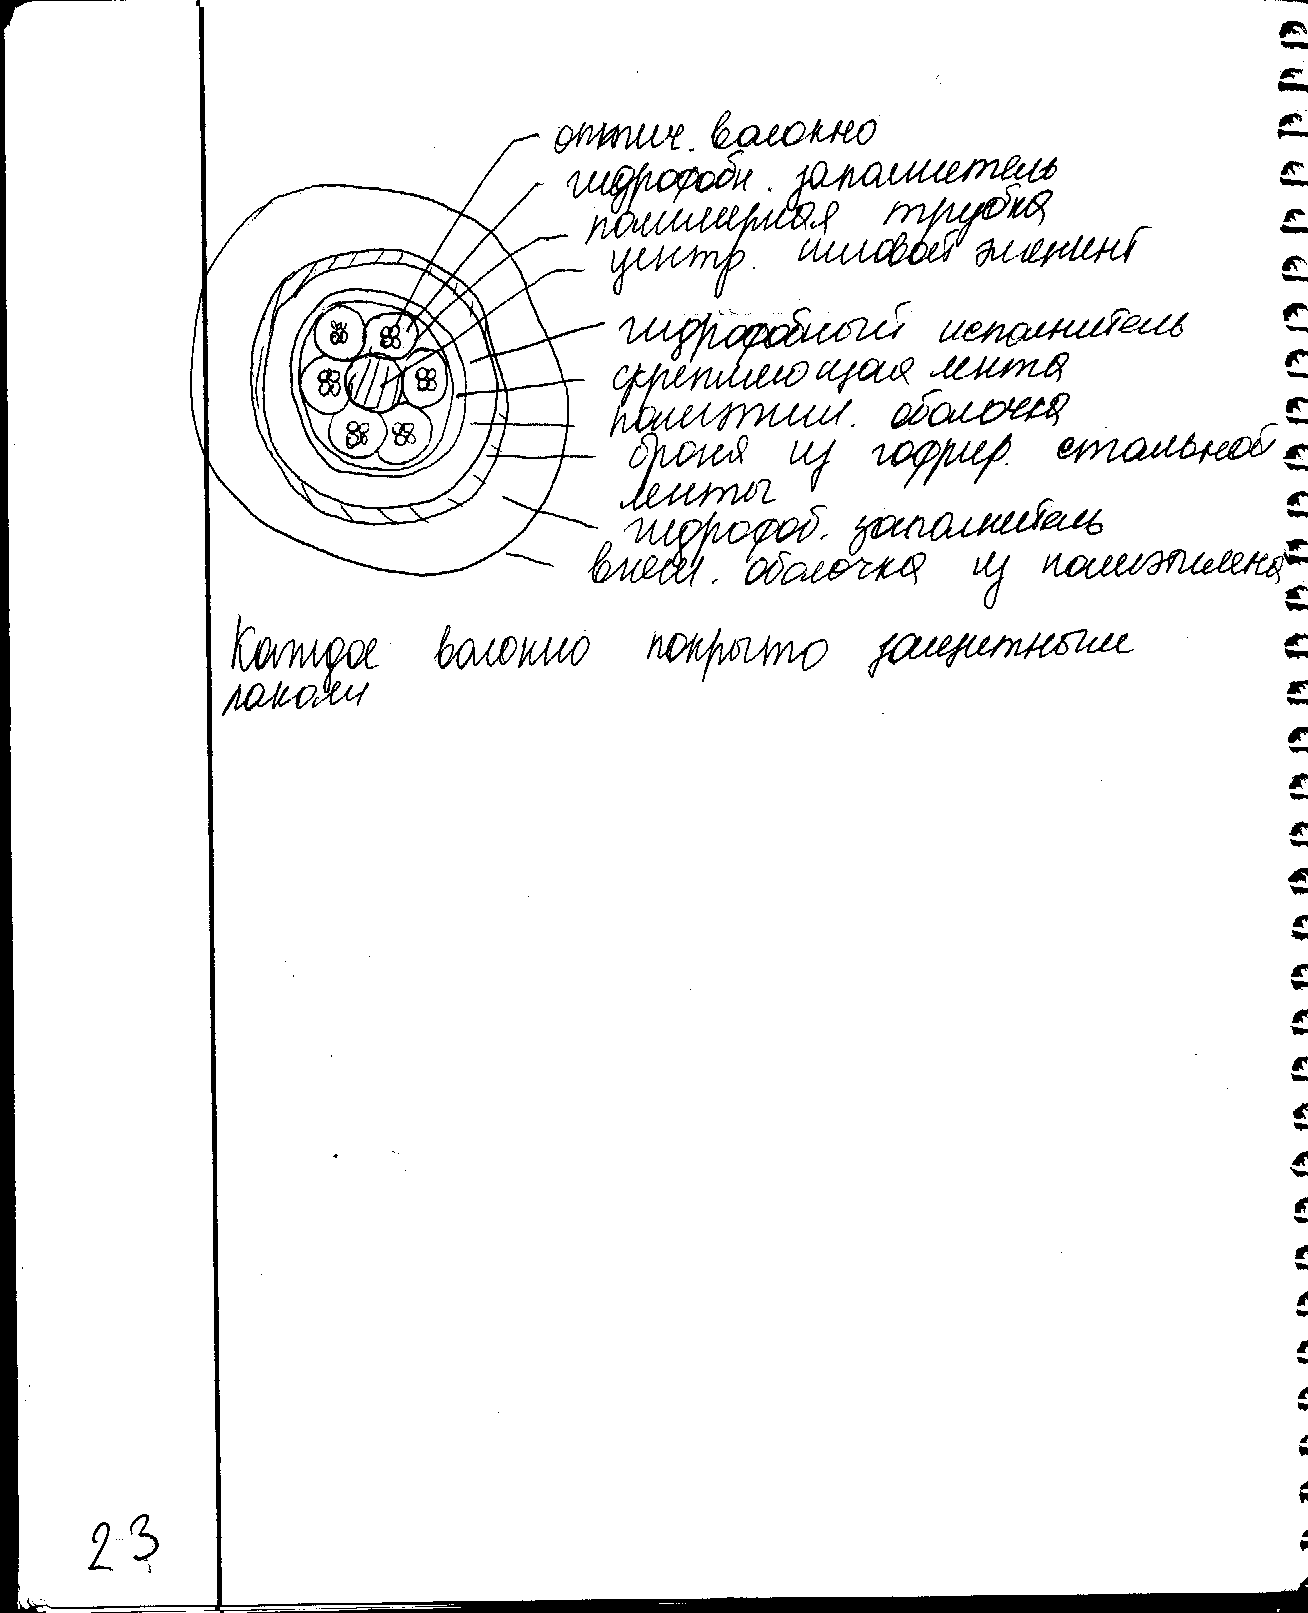 оптич. волокно
гидрофобн. заполнитель
полимерная трубка
центр. силовой элемент
гидрофобный исполнитель
скрепляющая лента
полиэтил. оболочка
броня из гофрир. стальной
ленты
гидрофоб. заполнитель
внеш. оболочка из полиэтилена
Каждое волокно покрыто защитным
лаком
23